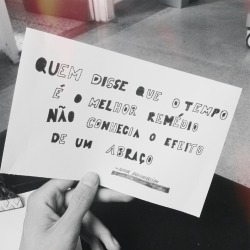 QUEM DISSE QUE O TEMPO
É O MELHOR REMÉDIO
NÃO CONHECIA O EFEITO
DE UM ABRAÇO